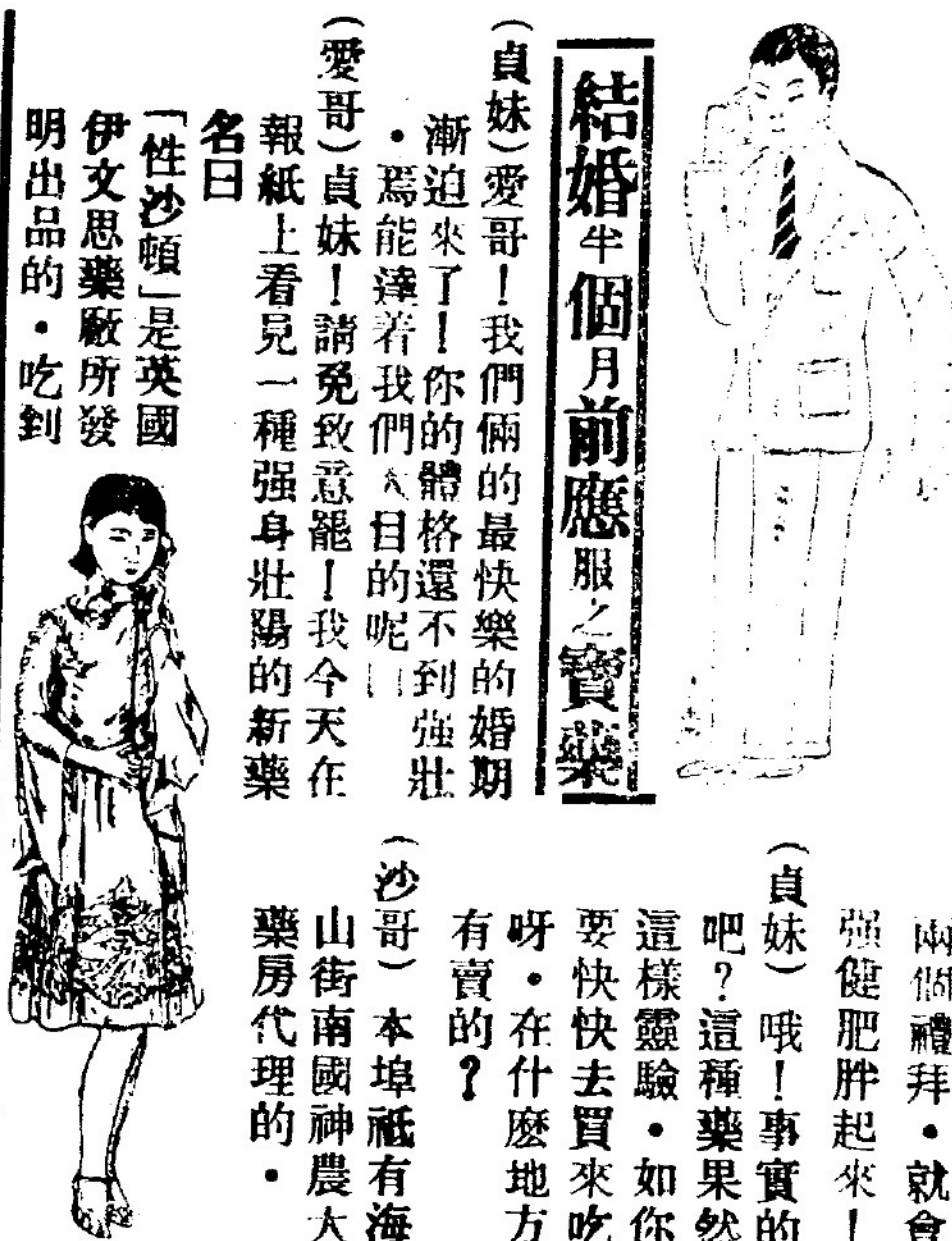 結婚半個月前應服之寶藥
(貞妹)愛哥!我們倆的最快樂的婚期
漸迫來了!你的體格還不到强壯
•焉能達着我們大目的呢
(愛哥)貞妹!請免致意罷!我今天在
報紙上看見一種强身壯陽的新藥
名曰
「性沙頓」是英國
伊文思藥廠所發
明出品的•吃到
兩個禮拜•就會
强健肥胖起來!
(貞妹)哦!事實的
吧?這種藥果然
這樣靈驗•如你
要快快去買來吃
呀•在什麽地方
有賣的?
(沙哥)本埠祗有海
山街南國神農大
藥房代理的•